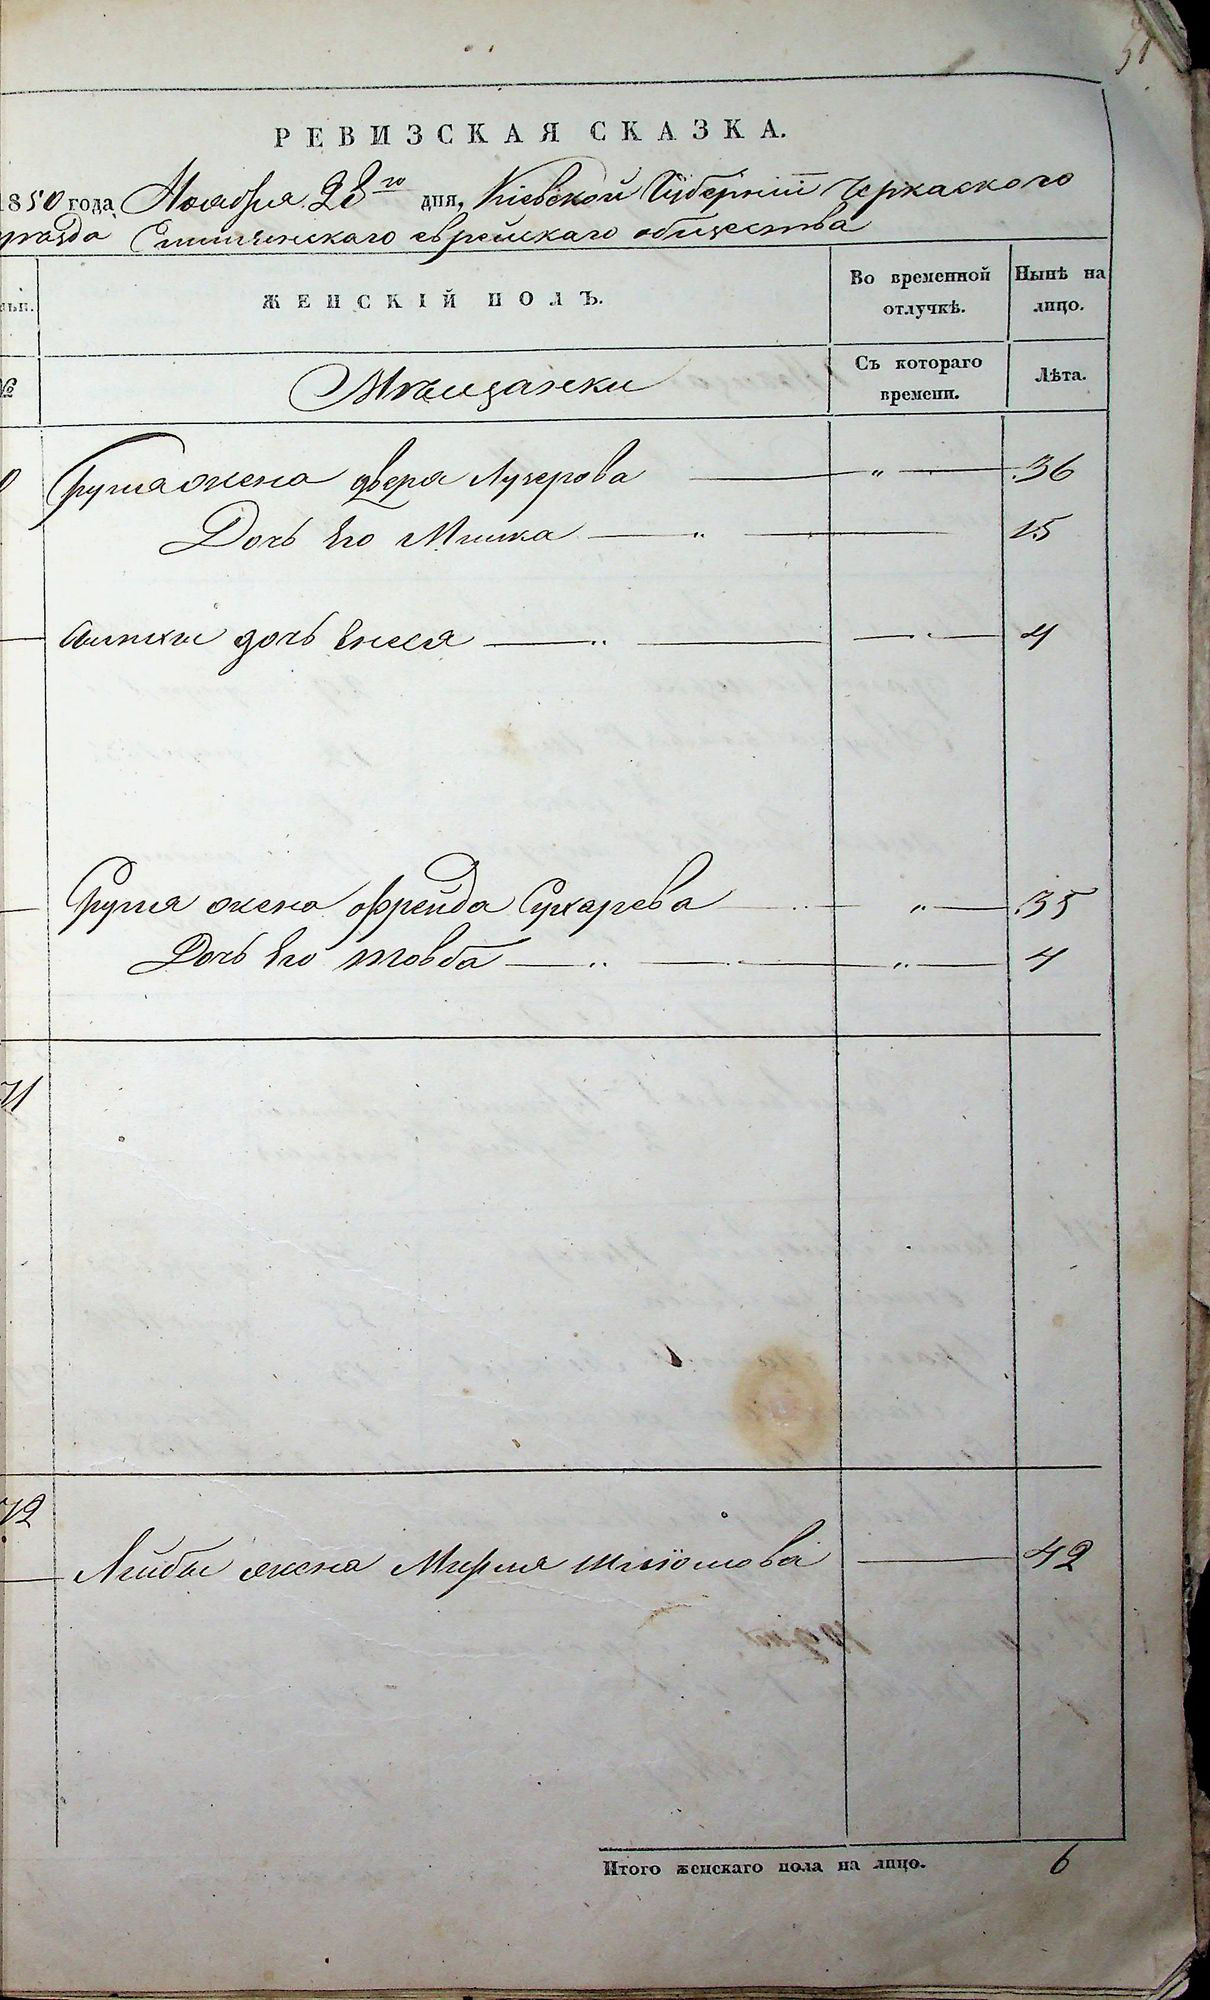 51
РЕВИЗСКАЯ СКАЗКА.
1850 года Ноября 28го дня, Кіевской Губерніи Черкаского
уѣзда еврейскаго общества
ЖЕНСКІЙ ПОЛЪ.
Во временной отлучкѣ.
Нынѣ на лицо.
№
Мѣщанки
Съ котораго времени.
Лѣта.
жена двера Лузерова — " — 36
Дочь Его — " — 15
дочь Енеся — " — 4
жена Фрейда Сухарева — " — 35
Дочь Его Товба — " — 4
71
72
Лейбы жена Мирля Шлiомова — 42
Итого женскаго пола на лицо. 6